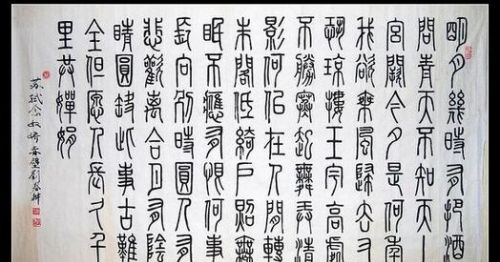 明月幾時有把酒
問青天不知天上
宮闕今夕是何年
我欲乘風歸去又
恐瓊樓玉宇高處
不勝寒起舞弄清
影何似在人間轉
朱閣低綺戶照無
眠不應有恨何事
長向別時圓人有
悲歡離合月有陰
晴圓缺此事古難
全但願人長久千
里共嬋娟
蘇軾念奴嬌赤壁劉